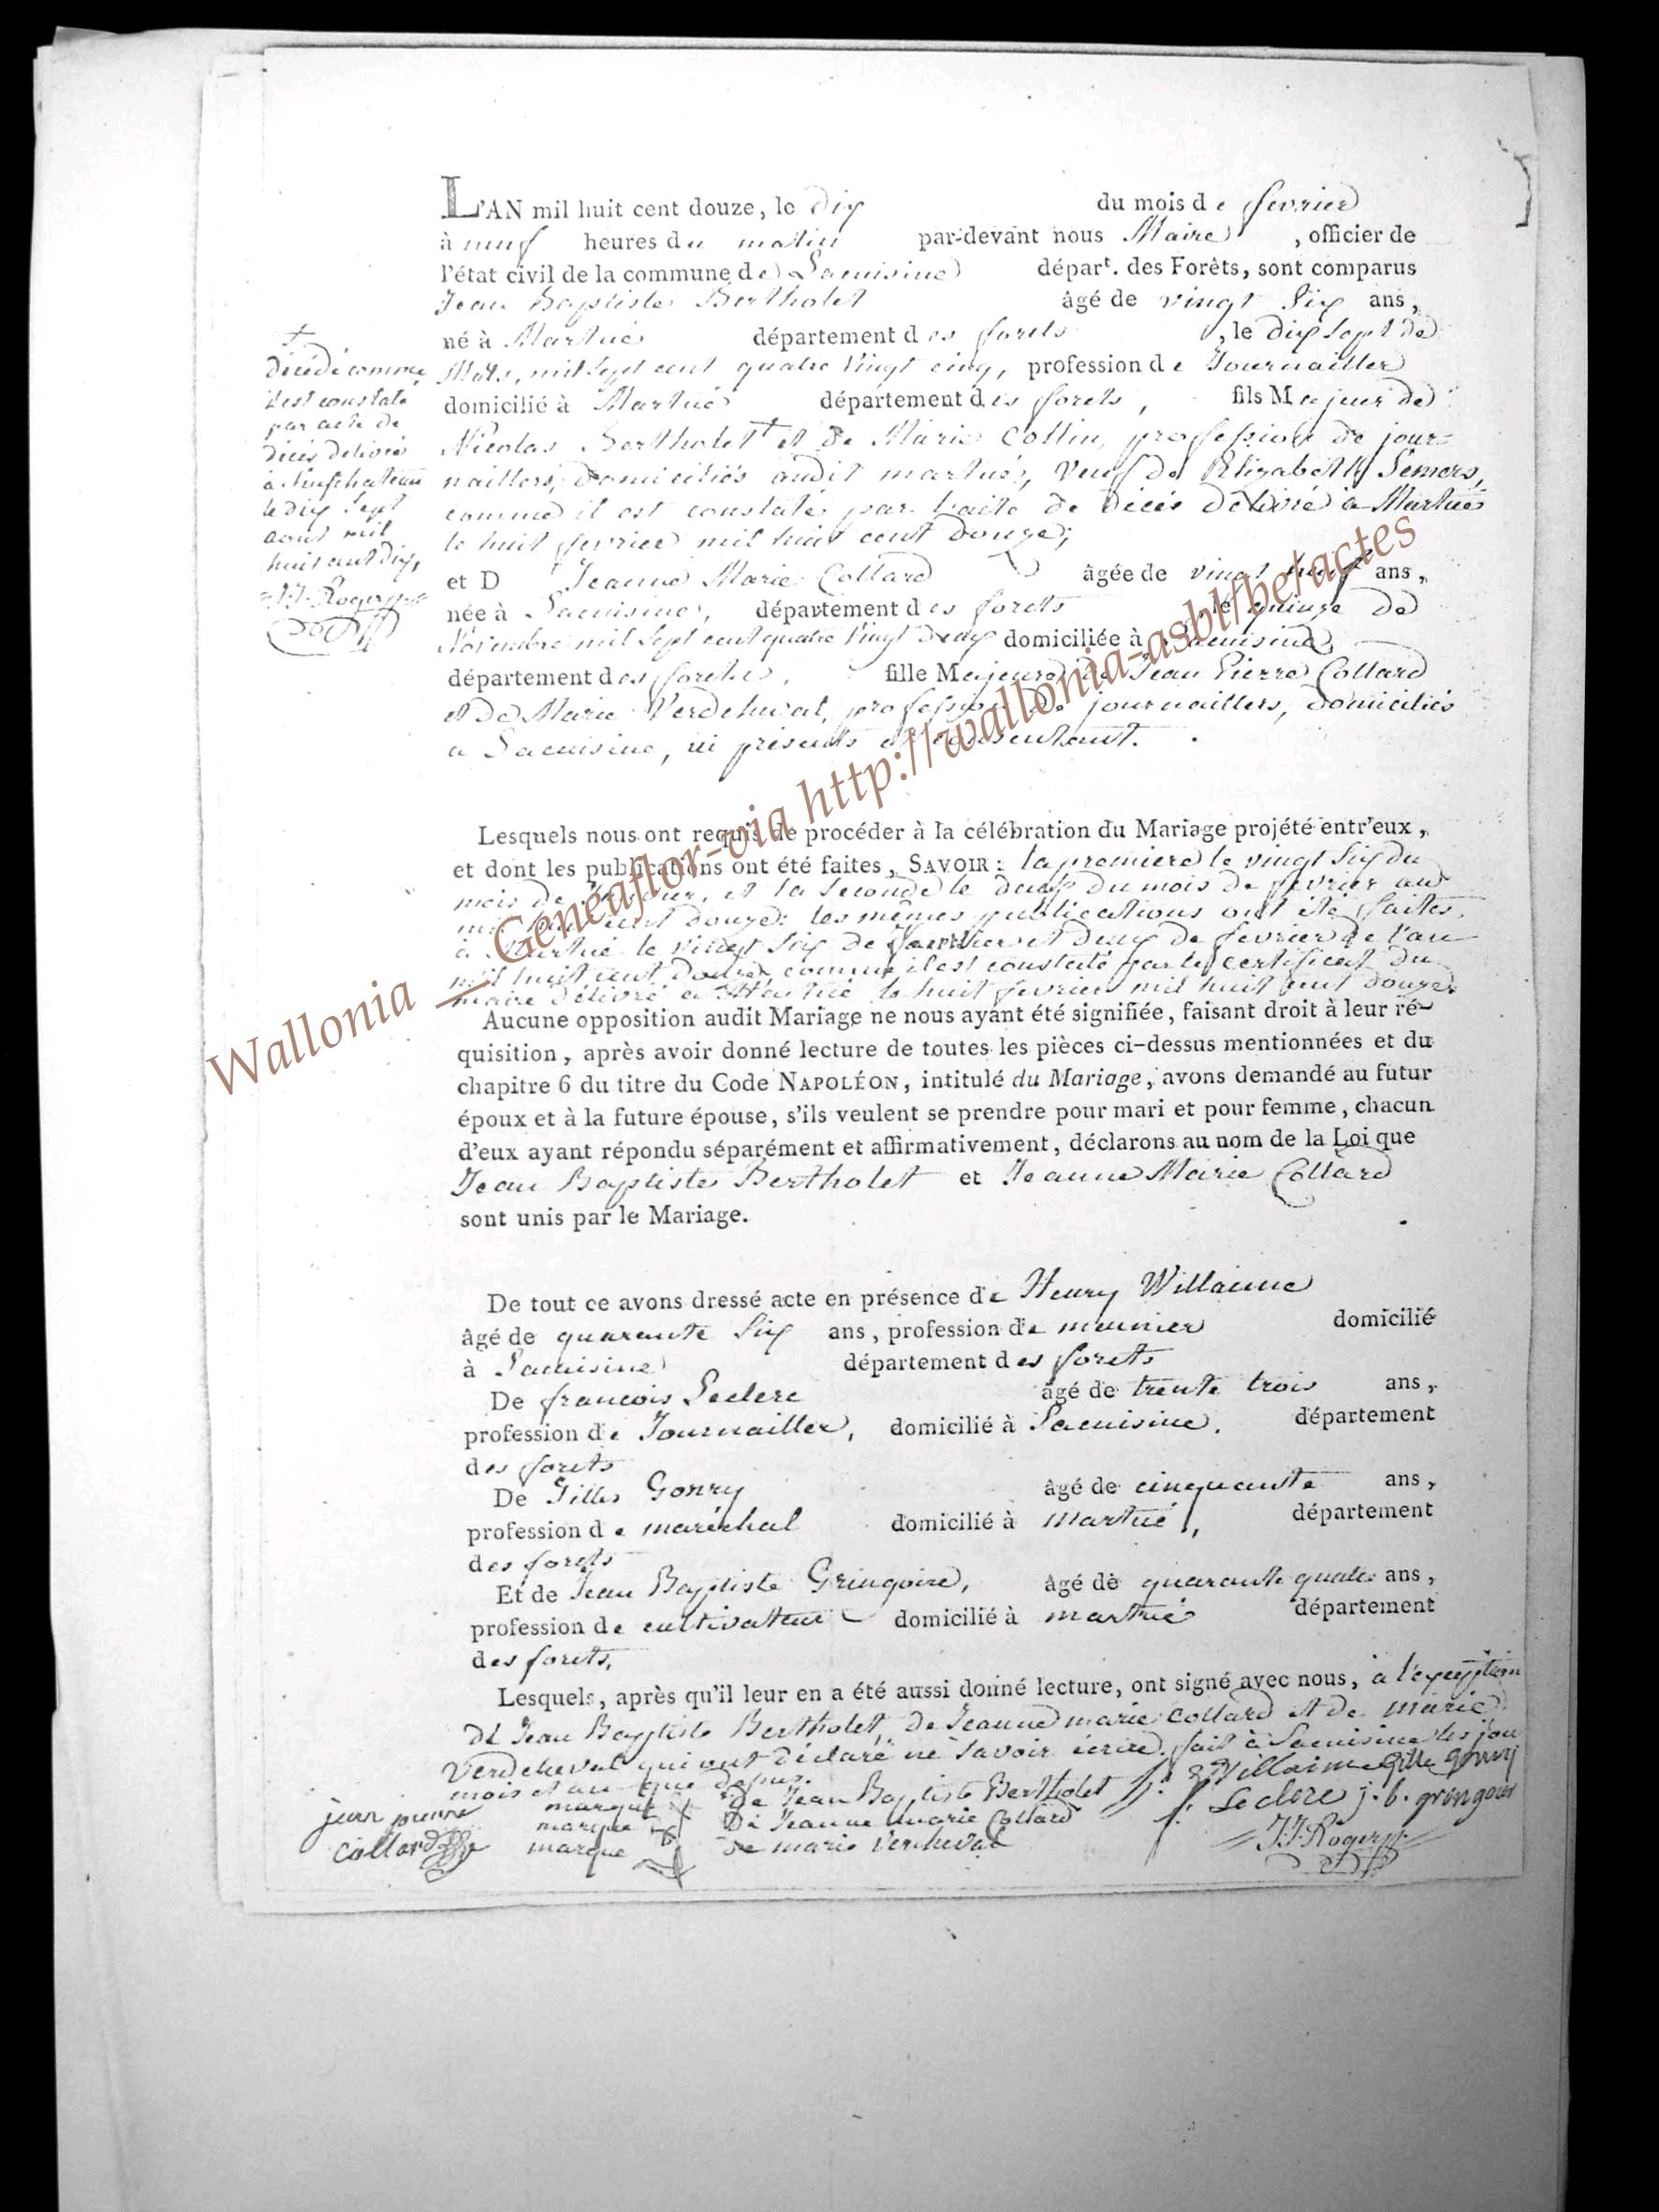 L'AN mil huit cent douze, le dix du mois de fevrier
à neuf heures du matin par-devant nous Maire, officier de
l'état civil de la commune de Lacuisine départ. des Forêts, sont comparus
Jean Baptiste Bertholet âgé de vingt Six ans,
né à Martué département des forets, le dix Sept de
Mars, mil Sept cent quatre Vingt cinq, profession de Journailler
domicilié à Martué département des forets, fils Majeur de
Nicolas Bertholet + et de Marie Collin, profession de jour=
naillers, domiciliés audit martué, Veuf de Elizabeth
comme il est constaté par l'acte de Décés Délivré à Martué
le huit fevrier mil huit cent douze;
+
décédé comme
il est constaté
par acte de
décés délivré
à Neufchateau
le dix Sept
aout mil
huit cent dix,
J.J. Roger
et D Jeanne Marie Collard âgée de vingt neuf ans,
née à Lacuisine, département des forets, le quinze de
Novembre mil Sept cent quatre Vingt Deux domiciliée à Lacuisine,
département des forets, fille Majeure de Jean Pierre Collard
et de Marie Verdcheval, profession de journaillers, domiciliés
a Lacuisine, ici présents et consentant.
Lesquels nous ont requis de procéder à la célébration du Mariage projété entr'eux,
et dont les publications ont été faites, SAVOIR: la premiere le vingt Six du
mois de Janvier, et la Seconde le deux du mois de fevrier an
mil huit cent douze: les mêmes publications ont été faites
à Martué le vingt Six de Janvier et deux de fevrier de l'an
mil huit cent douze, comme il est constaté par le certificat du
maire délivré a Martué le huit fevrier mil huit cent douze.
Aucune opposition audit Mariage ne nous ayant été signifiée, faisant droit à leur ré-
quisition, après avoir donné lecture de toutes les pièces ci-dessus mentionnées et du
chapitre 6 du titre du Code NAPOLÉON, intitulé du Mariage, avons demandé au futur
époux et à la future épouse, s'ils veulent se prendre pour mari et pour femme, chacun
d'eux ayant répondu séparément et affirmativement, déclarons au nom de la Loi que
Jean Baptiste Bertholet et Jeanne Marie Collard
sont unis par le Mariage.
De tout ce avons dressé acte en présence de Henry Willaime
âgé de quarante Six ans, profession de meunier domicilié
à Lacuisine département des forets
De francois Leclerc âgé de trente trois ans,
profession de Journailler, domicilié à Lacuisine, département
des forets
De Gilles Gonry âgé de cinquante ans,
profession de maréchal domicilié à martué, département
des forets
Et de Jean Baptiste Gringoire, âgé de quarante quatre ans,
profession de cultivateur domicilié à martué département
des forets,
Lesquels, après qu'il leur en a été aussi donné lecture, ont signé avec nous, a l'exception
de Jean Baptiste Bertholet, de Jeanne marie Collard et de marie
Verdcheval qui ont déclaré ne Savoir écrire. fait à Lacuisine les jour
mois et an que depus.
jean pierre collard
marque de Jean Baptiste Bertholet
marque De Jeanne marie Collard
marque de marie Vercheval
h. Willaime gille gonry
f. Leclere j. b. gringoire
J.J. Roger
Wallonia __ Généaflor-via http://wallonia-asbl/be/actes